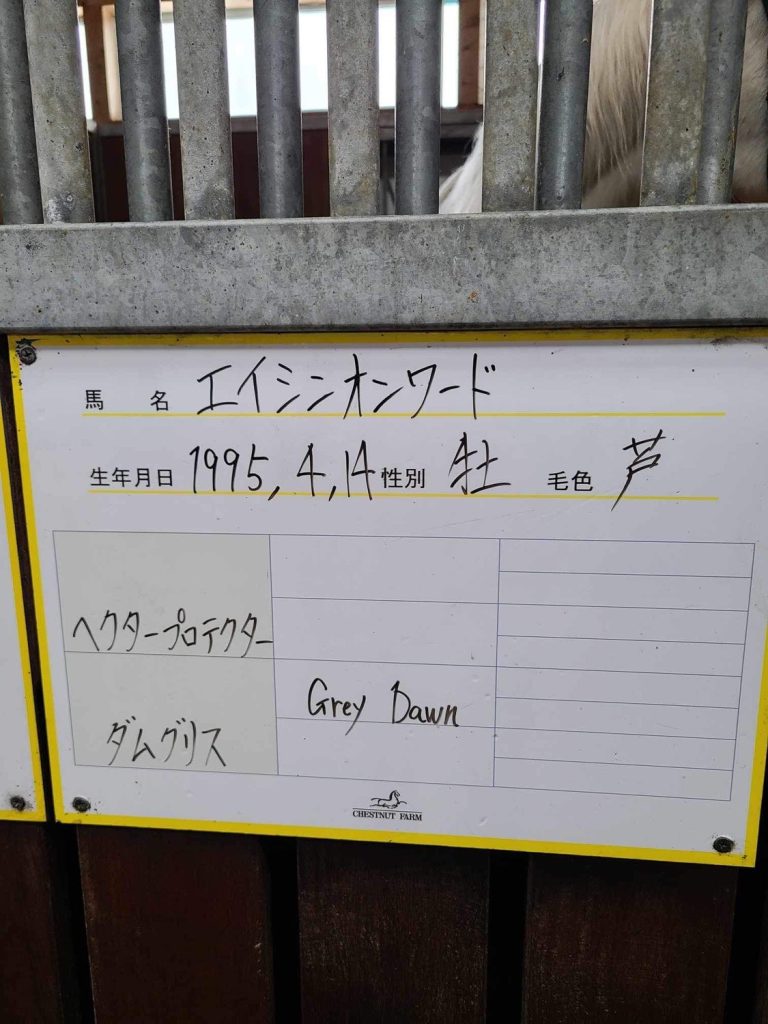 馬 名 エイシンオンワード
生年月日 1995,4,14 性別 牡 毛色 芦
ヘクタープロテクター
Grey Dawn
ダムグリス
CHESTNUT FARM